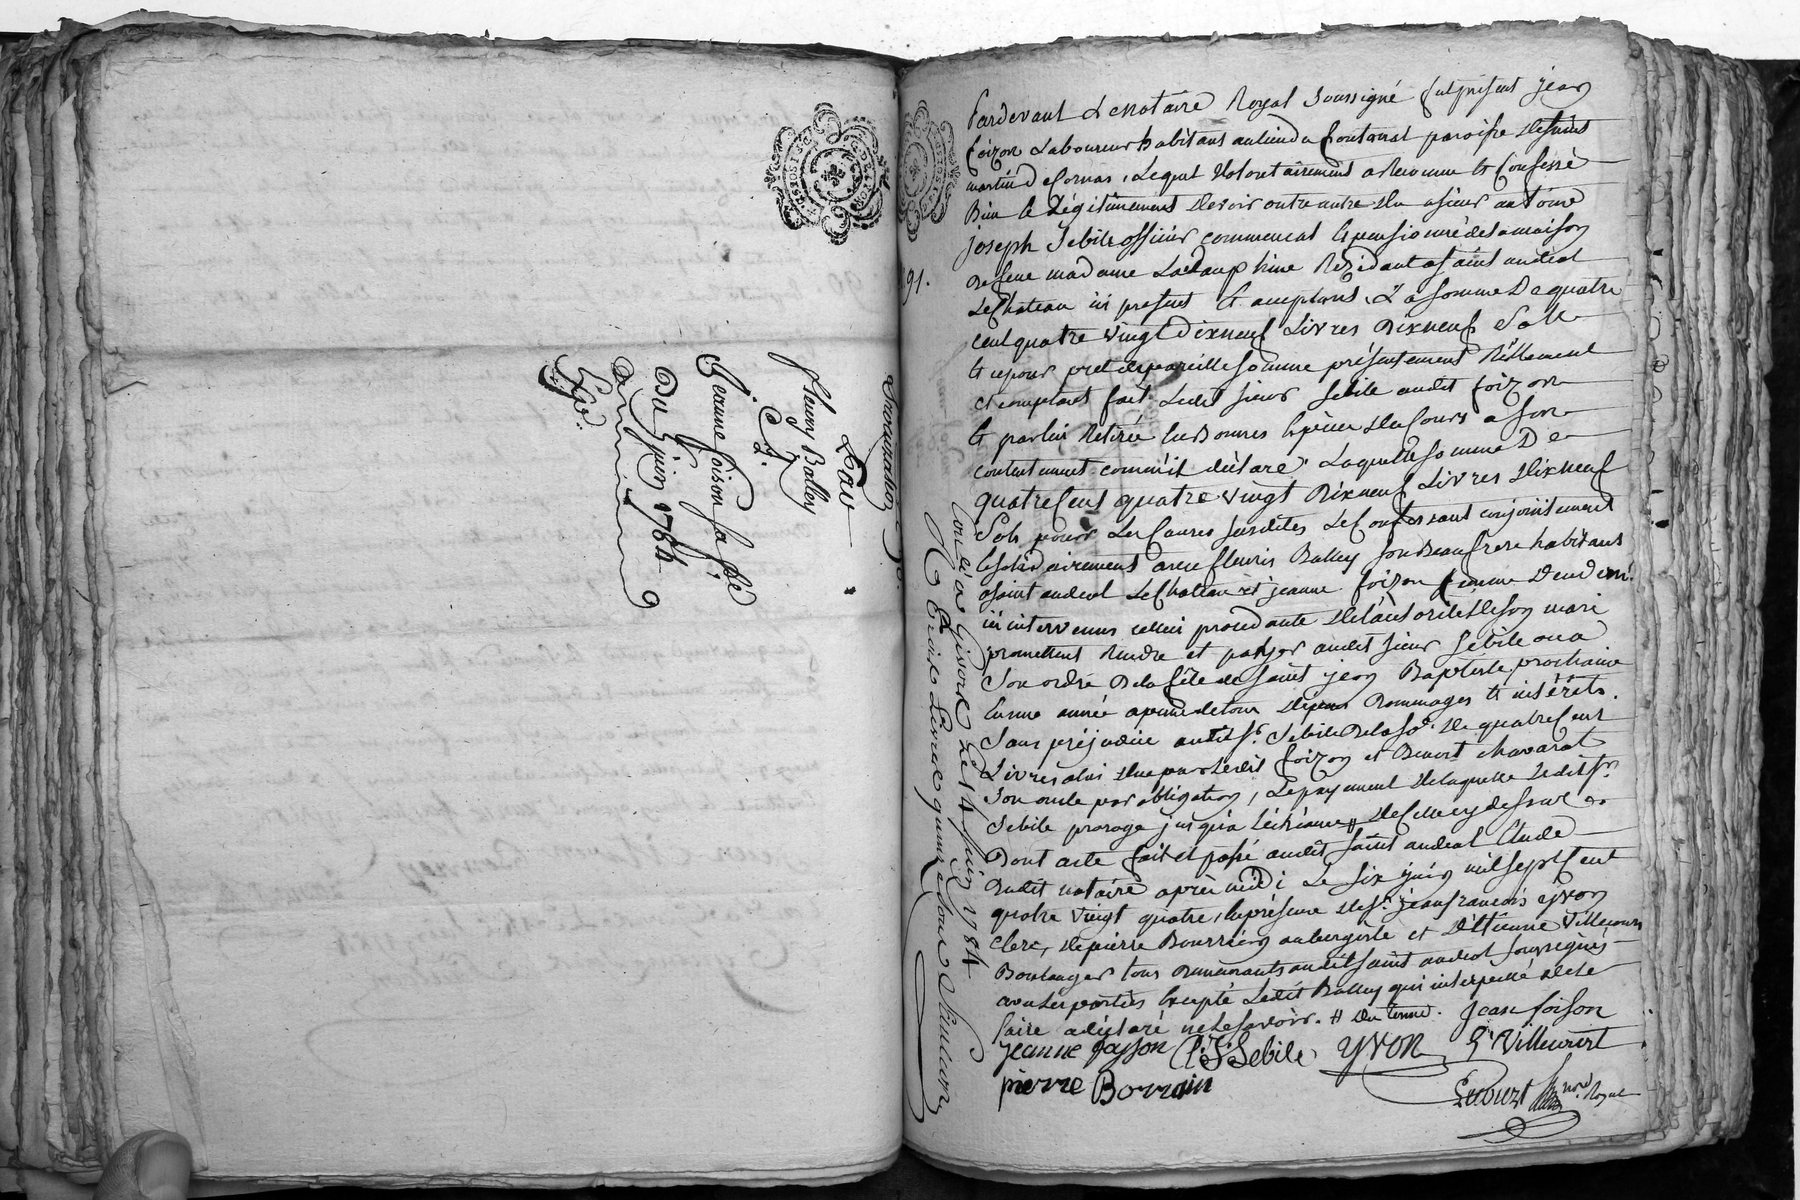 Par
Fleury Balley
&
Jeanne foison sa fe
Du 6 juin 1784
91.
Pardevant Le notaire Royal soussigné fut présent jean
foizon Laboureur habitant au lieu du fontanat paroisse de saint
martin de Cornas, Lequel Volontairement a Reconnu et Confessé
Bien et Légitimement devoir outre autre du a sieur antoine
joseph Sebile officier commencal et pensionnée de la maison
de feue madame La dauphine Residant a saint andéol
Le Chateau ici present et acceptant, La somme De quatre
cent quatre vingt Dixneuf Livres Dixneuf Sols
et ce pour pret de pareille somme présentement Réellement
et comptant fait Ledit sieur Sebile audit foizon
et par lui Retirée en Bonnes Espèces de Cours a son
contentement comm'il déclare, Laquelle somme De
quatre Cent quatre vingt Dixneuf Livres dixneuf
Sols pour Les Causes susdites Le Confessant conjointement
et solidairement avec fleuris Balley son Beaufrere habitant
a saint andeol Le Chateau et jeanne foizon femme Deudern.
ici intervenus celleci procedante de l'autorité de son mari
promettent Rendre et payer audit sieur Sebile ou a
Son ordre De la fête de saint jean Baptiste prochaine
En une année a peine de tous dépens Dommages et intérêts.
Sans préjudice audit Sr. Sebile De la Se. de quatre Cent
Livres a lui due par Ledit foizon et Benoit chavarat
Son oncle par obligation, Le payement de laquelle Ledit Sr.
Sebile proroge jusqu'a Léchéance # de Celle cy dessus
Dont acte fait et passé audit saint andeol Etude
dudit notaire après midi Le six juin mil sept Cent
quatre vingt quatre, En présence de Sr. jean francois yvon
clerc, de pierre Bourrein aubergiste et d'Etienne Villecourt
Boulanger tous demeurants audit saint andeol soussignés
avec Les parties Excepté Ledit Balley qui interpellé de le
faire a déclaré ne Le savoir. # du terme. Jean foison
jeanne foysson A: J: Sebile YVON E. Villecourt
pierre Borrain
Lecourt nore. Royal
Controlé a Givors Le 14 juin 1784